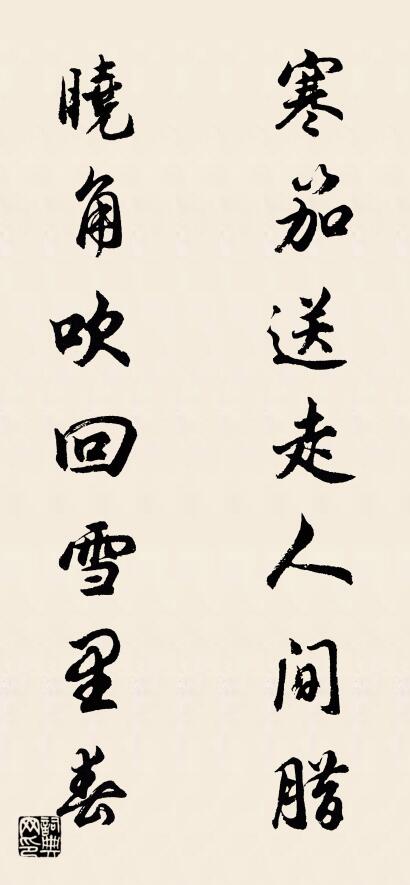 寒笳送走人间腊
曉角吹回雪里春
詞典网印